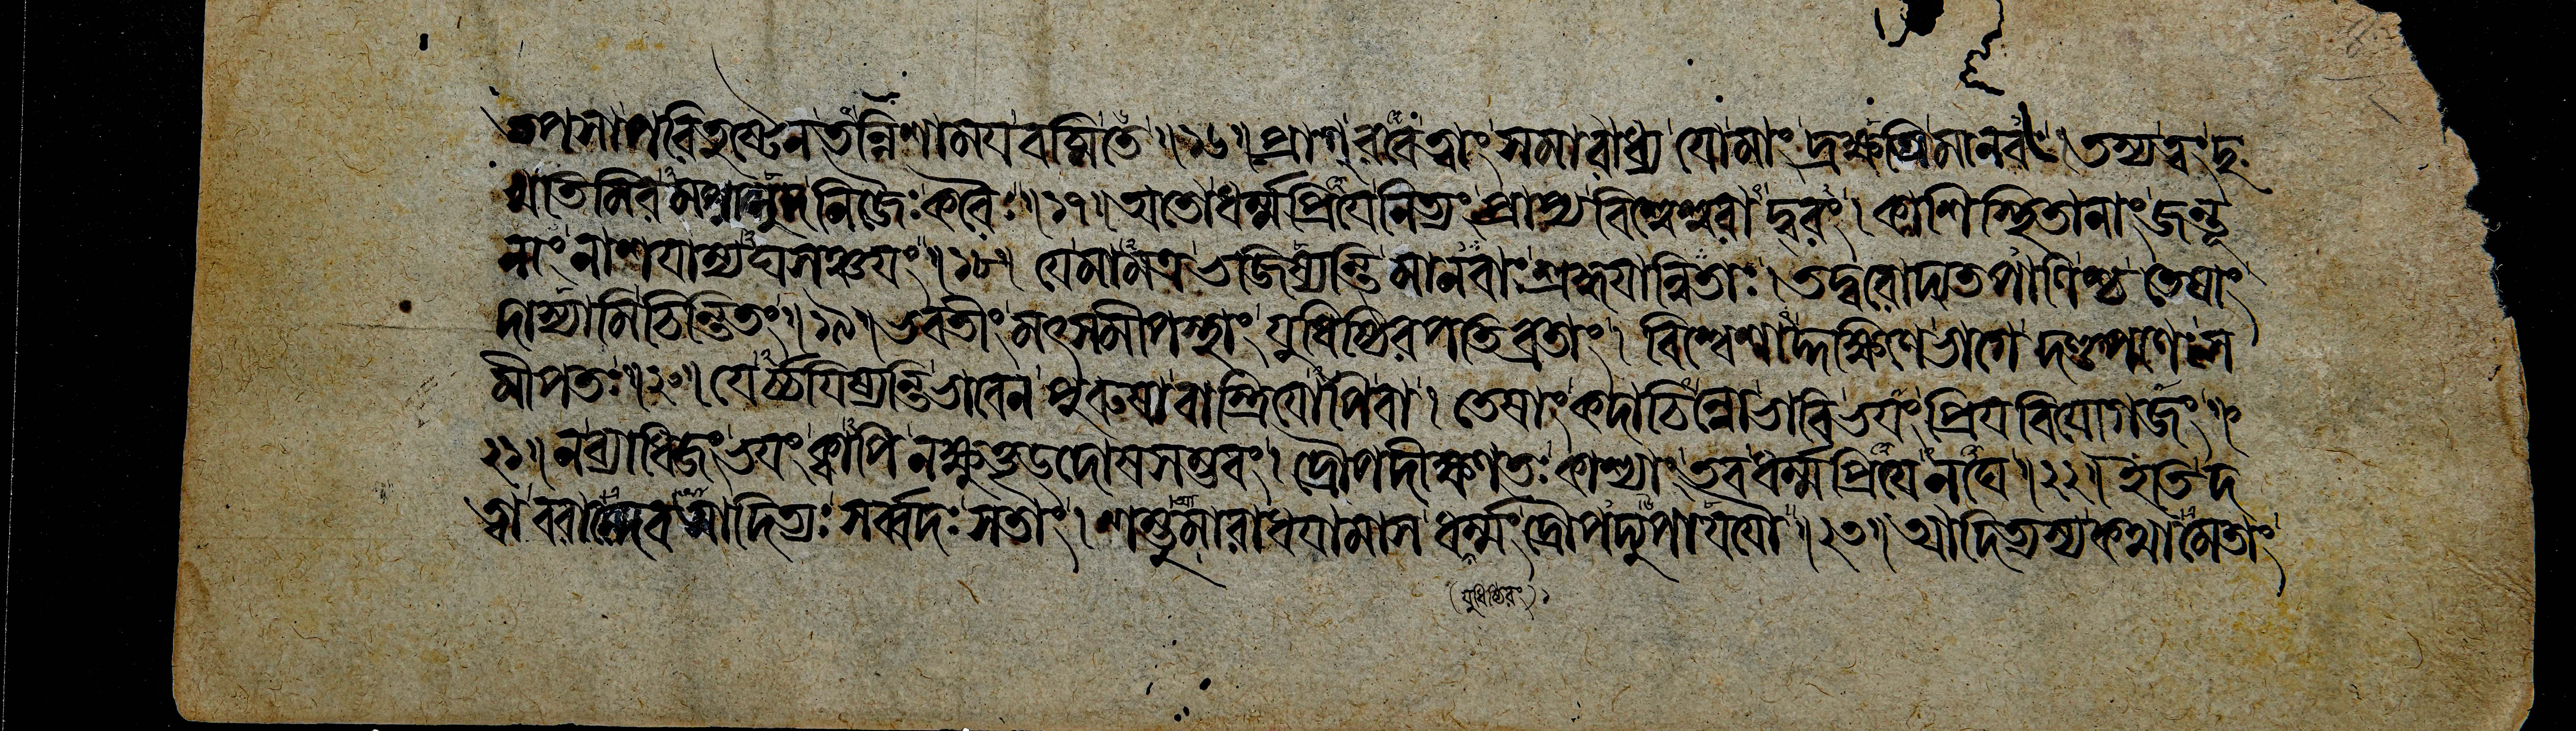 তপসাপরিতুষ্টেন তন্নিশাময বচ্মিতে ॥ ১৬ ॥ প্রাগ্ রবেত্বাং সমারাধ্য যোমাং দ্রক্ষ্যতি মানবঃ । তস্যত্বং দুঃ
খতিমিরমপানুদ নিজৈঃ করৈঃ ॥ ১৭ ॥ অতো ধর্ম্মপ্রিযে নিত্যং প্রাপ্য বিশ্বেশ্বরাদ্বরং । কাশিস্থিতানাং জন্তূ
নাং নাশযাম্যঘসঞ্চযং ॥ ১৮ ॥ যে মামত্র ভজিষ্যন্তি মানবাঃ শ্রদ্ধযান্বিতাঃ । ত্বদ্বরোদ্যতপাণিঞ্চ তেষাং
দাস্যামি চিন্তিতং ॥ ১৯ ॥ ভবতীং মৎসমীপস্থাং যুধিষ্ঠিরপতিব্রতাং । বিশ্বেশাদ্দক্ষিণে ভাগে দণ্ডপাণেঃ স
মীপতঃ ॥ ২০ ॥ যের্চ্চযিষ্যন্তি ভাবেন পুরুষাবাস্ত্রিযোপিবা । তেষাং কদাচিন্নোভাবি ভযং প্রিযবিযোগজং ॥
২১ ॥ নব্যাধিজং ভযং ক্বাপি নক্ষুত্তৃড্দোষসম্ভবং । দ্রৌপদীক্ষণতঃ কাশ্যাং তব ধর্ম্মপ্রিযেনঘে ॥ ২২ ॥ ইতি দ
ত্বা বরান্দেব আদিত্যঃ সর্ব্বদঃ সতাং । শম্ভুমারাধযামাস ধর্ম্মং দ্রৌপদ্যুপাযযৌ ॥ ২৩ ॥ আদিত্যস্য কথামেতাং
(যুধিষ্ঠিরং) ১